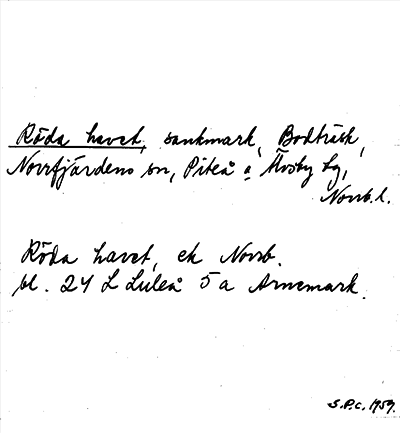 Röda havet, sankmark, Bodträsk,
Norrfjärdens sn, Piteå o. Älvsby tg,
Norrb. l.
Röda havet, ek Norrb.
bl. 24 L Luleå 5 a Arnemark.
S.P.C. 1959.